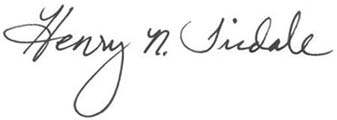 Henry N. Tisdale